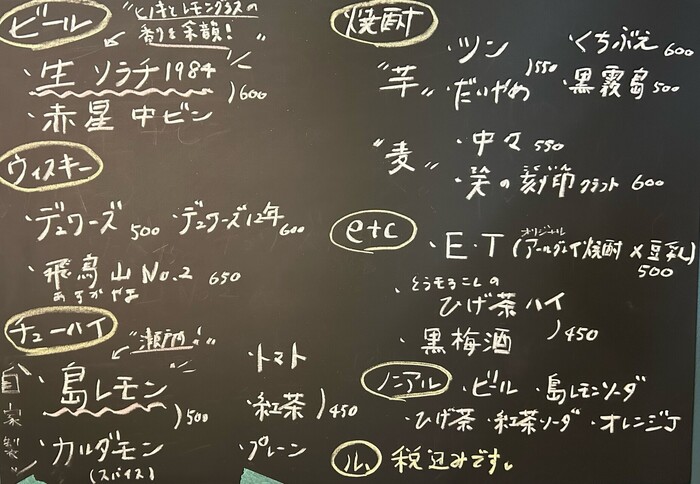 ビール
"ヒノキとレモングラスの
香りを余韻!"
・生 ソラチ1984
・赤星 中ビン
)600
ウィスキー
・デュワーズ 500 ・デュワーズ12年 600
・飛鳥山 No.2 650
あすかやま
チューハイ
"瀬戸内!"
自家製"
・島レモン
・カルダモン
(スパイス)
)500
・トマト
・紅茶
・プレーン
)450
焼酎
"芋"
・ツン
・だいやめ
)550
・くちぶえ 600
・黒霧島 500
"麦"
・中々 550
・笑の刻印クラフト 600
こくいん
etc
オリジナル
・E・T(アールグレイ焼酎×豆乳)
500
・とうもろこしの
ひげ茶ハイ
・黒梅酒
)450
ノンアル ・ビール ・島レモンソーダ
・ひげ茶 ・紅茶ソーダ ・オレンジJ
税込みです。